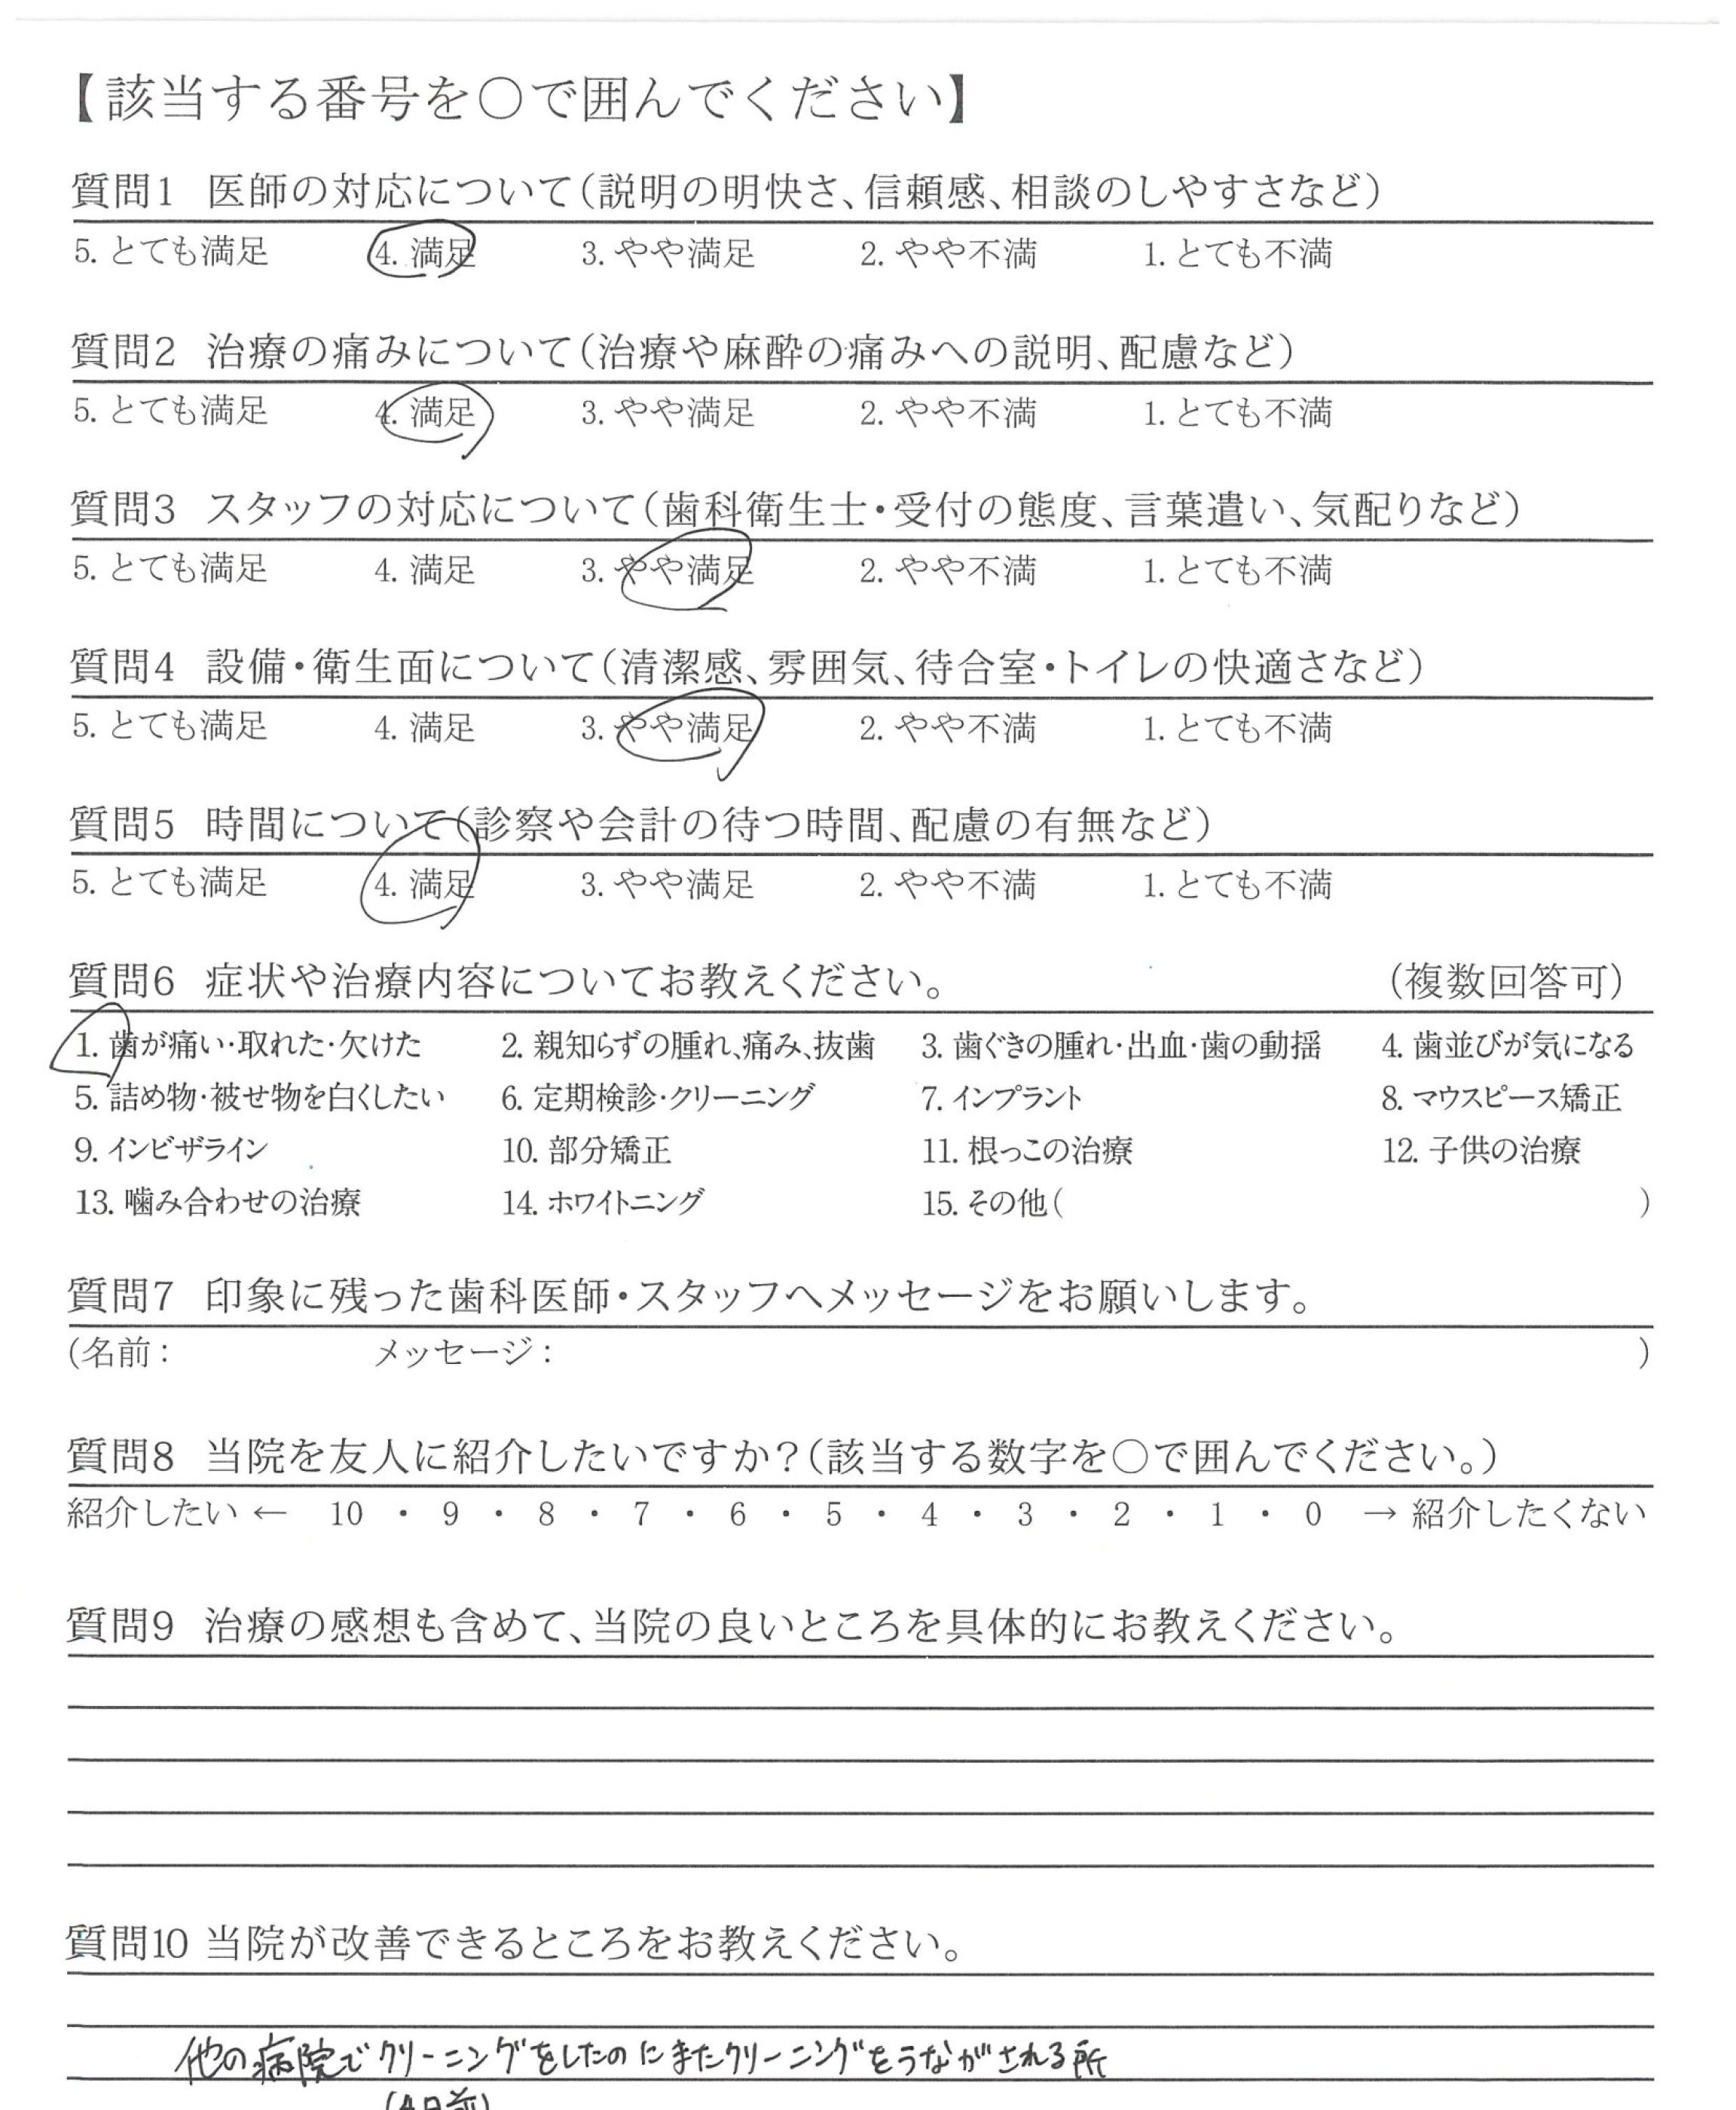 【該当する番号を○で囲んでください】
質問1 医師の対応について(説明の明快さ、信頼感、相談のしやすさなど)
5. とても満足 4. 満足 3. やや満足 2. やや不満 1. とても不満
質問2 治療の痛みについて(治療や麻酔の痛みへの説明、配慮など)
5. とても満足 4. 満足 3. やや満足 2. やや不満 1. とても不満
質問3 スタッフの対応について(歯科衛生士・受付の態度、言葉遣い、気配りなど)
5. とても満足 4. 満足 3. やや満足 2. やや不満 1. とても不満
質問4 設備・衛生面について(清潔感、雰囲気、待合室・トイレの快適さなど)
5. とても満足 4. 満足 3. やや満足 2. やや不満 1. とても不満
質問5 時間について(診察や会計の待つ時間、配慮の有無など)
5. とても満足 4. 満足 3. やや満足 2. やや不満 1. とても不満
質問6 症状や治療内容についてお教えください。 (複数回答可)
1. 歯が痛い・取れた・欠けた 2. 親知らずの腫れ、痛み、抜歯 3. 歯ぐきの腫れ・出血・歯の動揺 4. 歯並びが気になる
5. 詰め物・被せ物を白くしたい 6. 定期検診・クリーニング 7. インプラント 8. マウスピース矯正
9. インビザライン 10. 部分矯正 11. 根っこの治療 12. 子供の治療
13. 噛み合わせの治療 14. ホワイトニング 15. その他( )
質問7 印象に残った歯科医師・スタッフへメッセージをお願いします。
(名前: メッセージ: )
質問8 当院を友人に紹介したいですか?(該当する数字を○で囲んでください。)
紹介したい ← 10 ・ 9 ・ 8 ・ 7 ・ 6 ・ 5 ・ 4 ・ 3 ・ 2 ・ 1 ・ 0 → 紹介したくない
質問9 治療の感想も含めて、当院の良いところを具体的にお教えください。
質問10 当院が改善できるところをお教えください。
他の病院でクリーニングをしたのにまたクリーニングをうながされる所
(4日前)